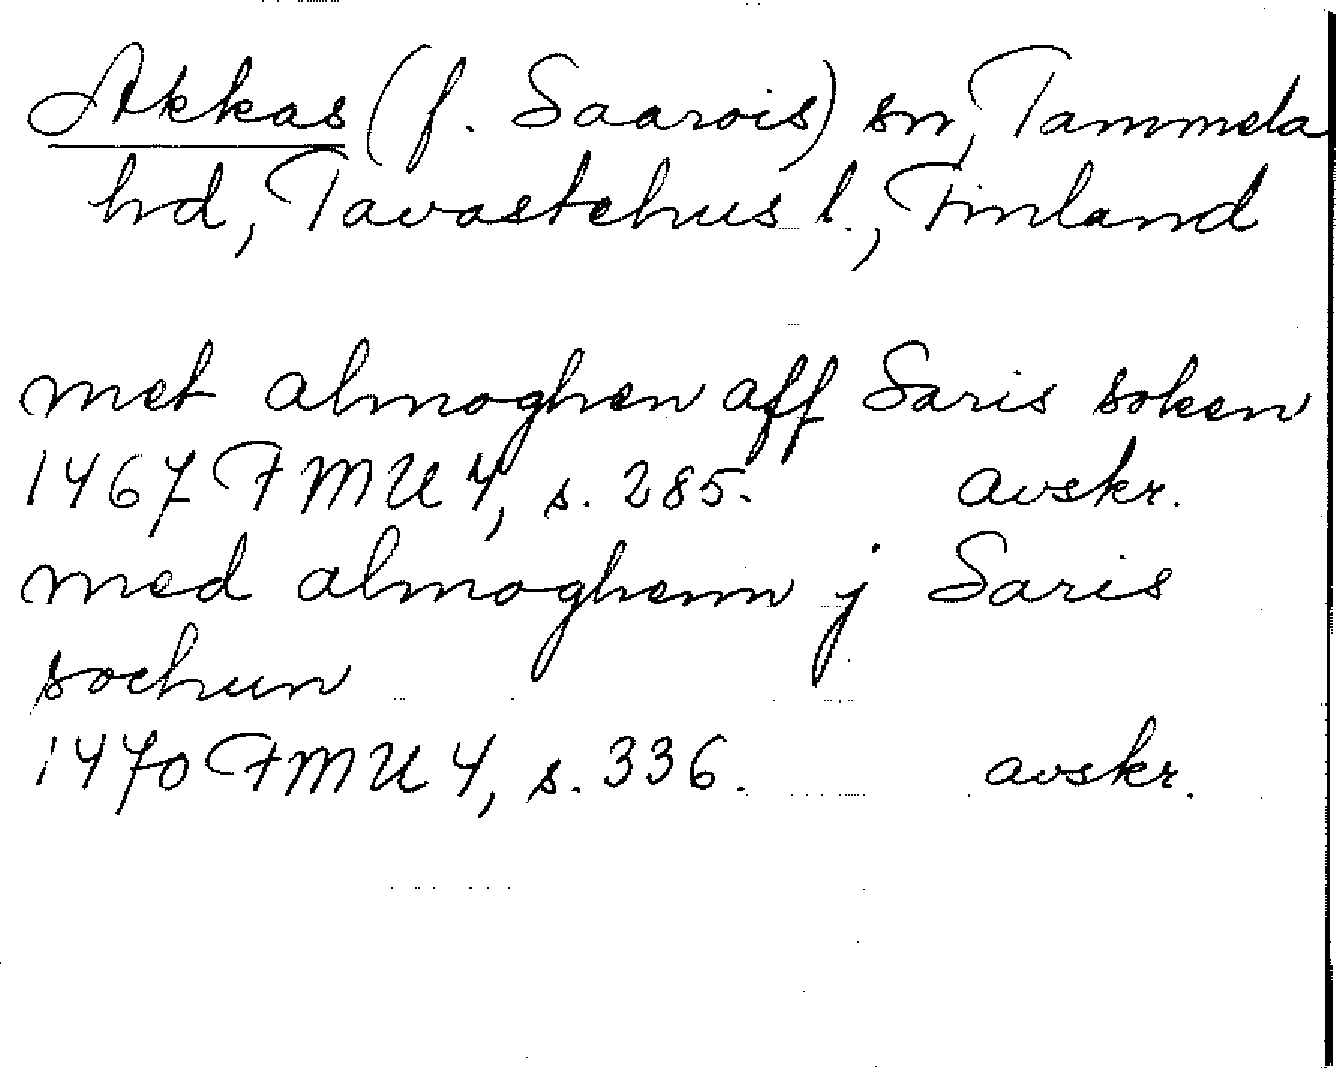 Akkas (f. Saarois) sn, Tammela
hd, Tavastehus l., Finland
met almoghen aff Saris soken
1467 FMU 4, s. 285. avskr.
med almoghenn j Saris
sochun
1470 FMU 4, s. 336. avskr.